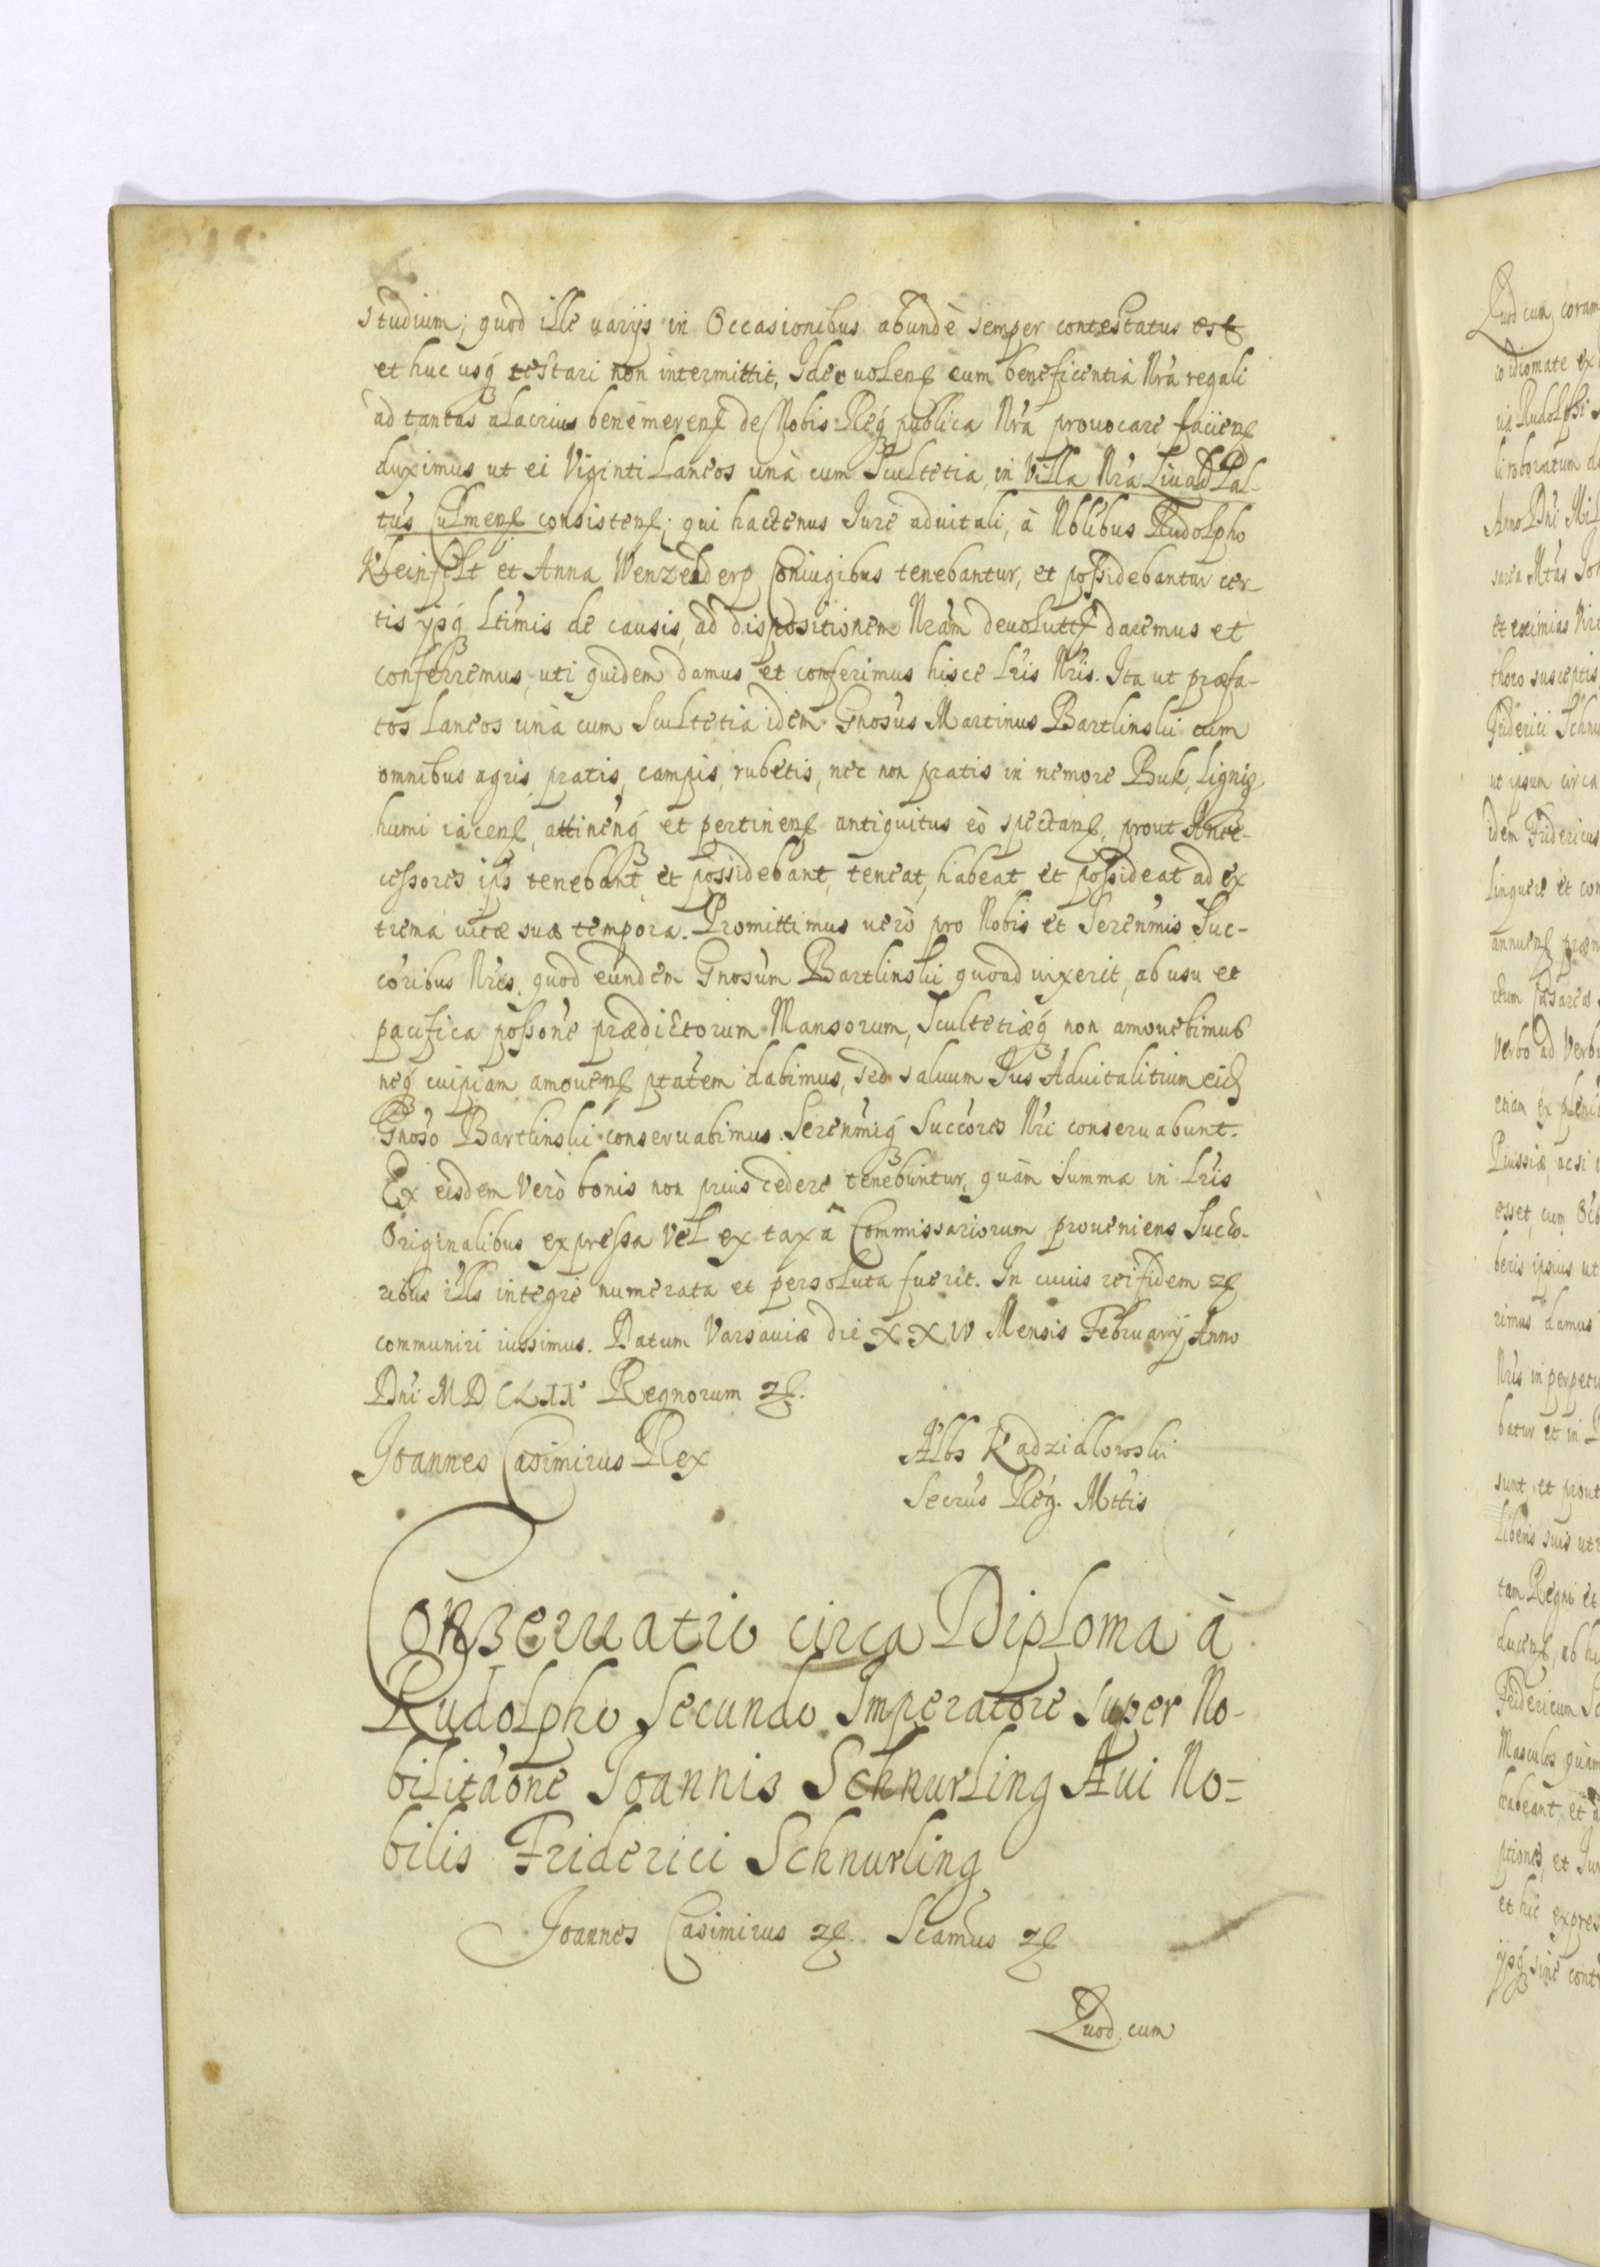 studium; quod ille varijs in Occasionibus abundè semper contestatus est
et huc usq́ testari non intermittit, Ideo volen cum beneficentia Nrá regali
ad tantas alacrius benemeren de Nobis Reiq́ publica Nrá provocare facien
duximus ut ei Viginti Laneos unà cum Scultetia, in Villa Nrá Livad Pal-
tus Culmen consisten; qui hactenus Jure advitali, à Nblibus Rudolpho
et Anna Coniugibus tenebantur, et possidebantur cer-
tis ipsq́ Ltimis de causis, ad dispositionem Nram devolut daremus et
conferremus, uti quidem damus et conferimus hisce Lris Nris. Ita ut præfa-
tos Laneos unà cum Scultetia idem Gnosus Martinus Bartlinslii cum
omnibus agris, pratis, campis, rubetis, nec non pratis in nemore Buk, Lignis
humi iacen, attinenq́ et pertinen antiquitus eò spectan, prout Ante-
cessores ips tenebant et possidebant, teneat, habeat et possideat ad ex
trema vitæ suæ tempora. Promittimus verò pro Nobis et Serenmis Suc-
coribus Nris, quod eundem Gnosum Bartlinslii quoad vixerit, ab usu et
pacifica possone prædictorum Mansorum, Scultetiæq́ non amovebimus
neq́ cuipiam amoven ptatem dabimus, sed salvum Jus Advitalitium eid
Gnoso Bartlinslii conservabimus. Serenmiq́ Succores Nri conservabunt.
Ex eisdem Verò bonis non prius cedere tenebuntur, quàm summa in Lris
Originalibus expressa vel ex taxâ Commissariorum proveniens Succo-
ribus illis integre numerata et persoluta fuerit. In cuius rei fidem etc
communiri iussimus. Datum Varsaviæ die XXIV Mensis February Anno
Dni MDCLII Regnorum etc.
Joannes Casimirus Rex
Albs Kadzidlowslii
Secrus Reg. Mttis
Conservatio circa Diploma à
Rudolpho Secundo Imperatore super No-
bilitáone Joannis Schnurling Avi No-
bilis Friderici Schnurling
Joannes Casimirus etc. Scamus etc
Quod cum